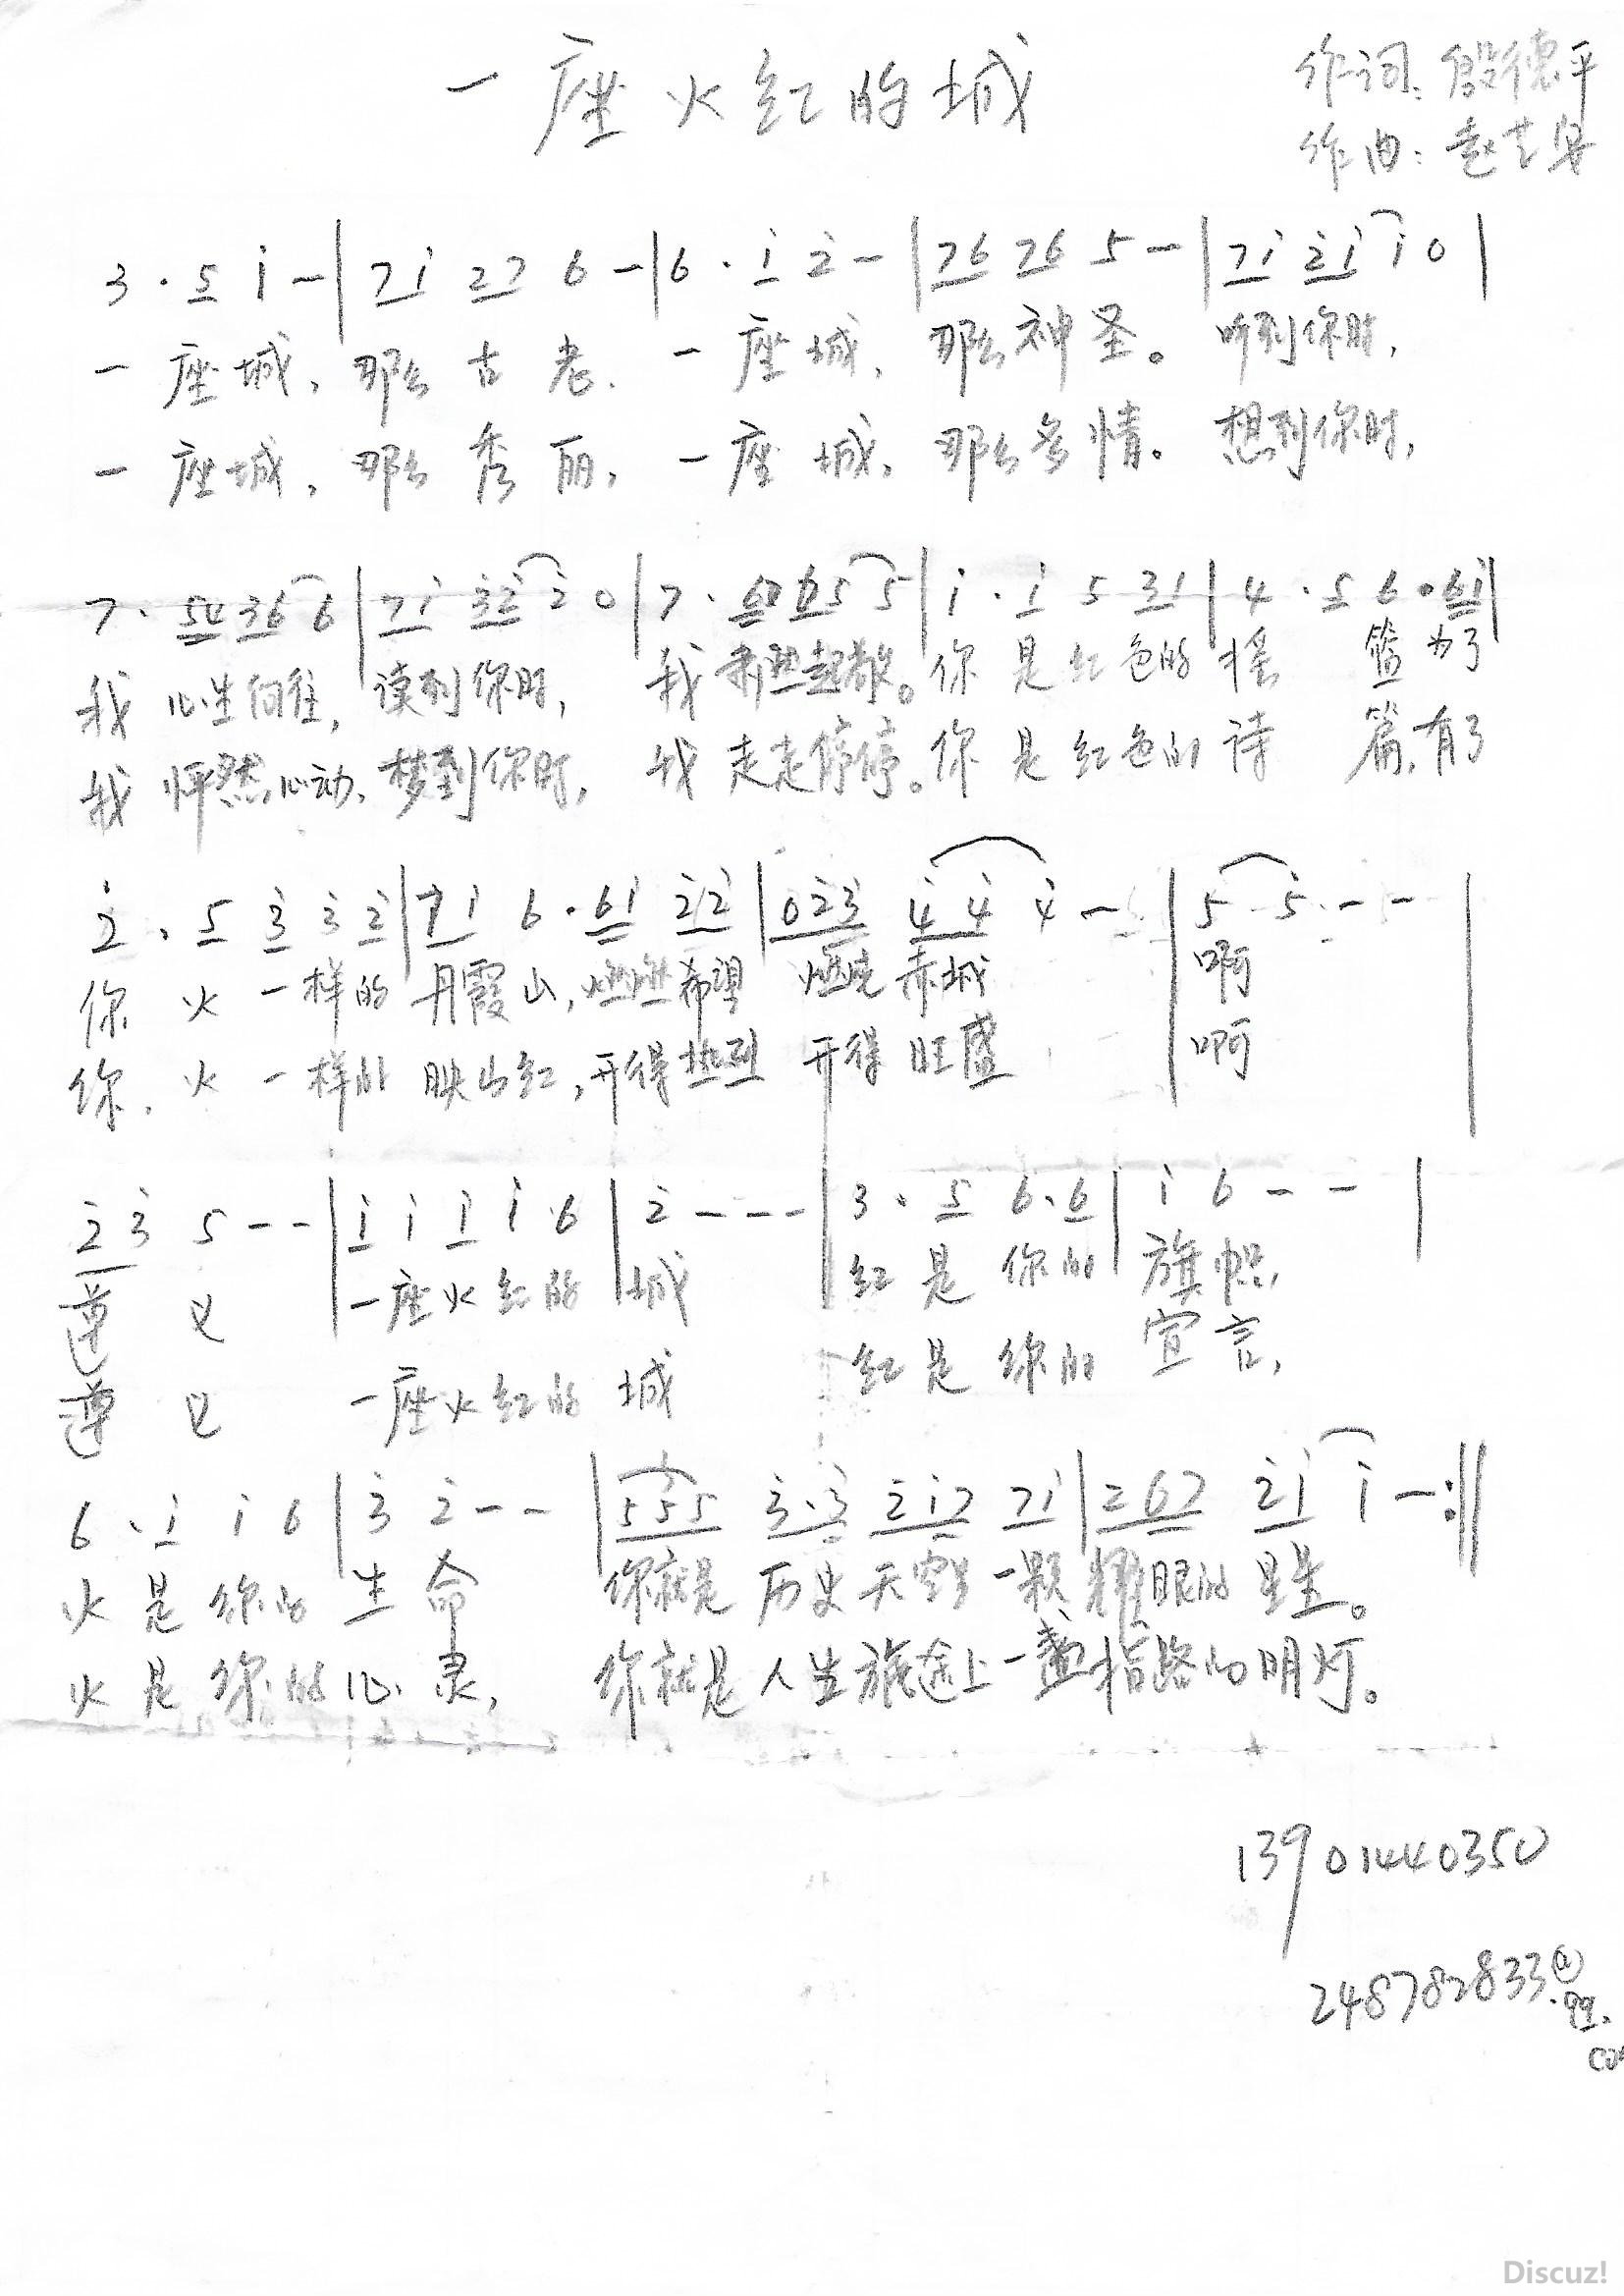 一座火红的城
作词：殷德平
作曲：
3·5 i－|7i 27 6－|6·i 2̇－|76 76 5－|7i 2̇i i 0|
一座城，那么古老．一座城，那么神圣。听到你时，
一座城，那么秀丽，一座城，那么多情。想到你时，
7·54 36 6|7i 3̇2̇ 2̇ 0|7·67 65 5|i·i 5 31|4·5 6·6i|
我心生向往，读到你时，我肃然起敬。你是红色的摇篮为了
我怦然心动，梦到你时，我走走停停。你是红色的诗篇，有了
2̇·5 3̇ 3̇ 2̇|7i 6·6i 2̇2̇|02̇3̇ 4̇ 4̇ 4̇－|5 5̇－－|
你火一样的丹霞山，燃燃希望 燃烧赤城 啊
你．火一样的映山红，开得热烈 开得旺盛 啊
2̇3̇ 5－－|i i i i 6|2̇－－－|3·5 6·6|i 6－－|
遵义 一座火红的城 红是你的旗帜，
遵义 一座火红的城 红是你的宣言，
6·i i 6|3̇ 2̇－－|555 3̇·3̇ 2̇i7 7i|267 2̇i i－:||
火是你的生命 你就是历史天空 一颗耀眼的星星。
火是你的心灵，你就是人生旅途上一盏指路的明灯。
13901440350
248782833@
qq.
com
Discuz!